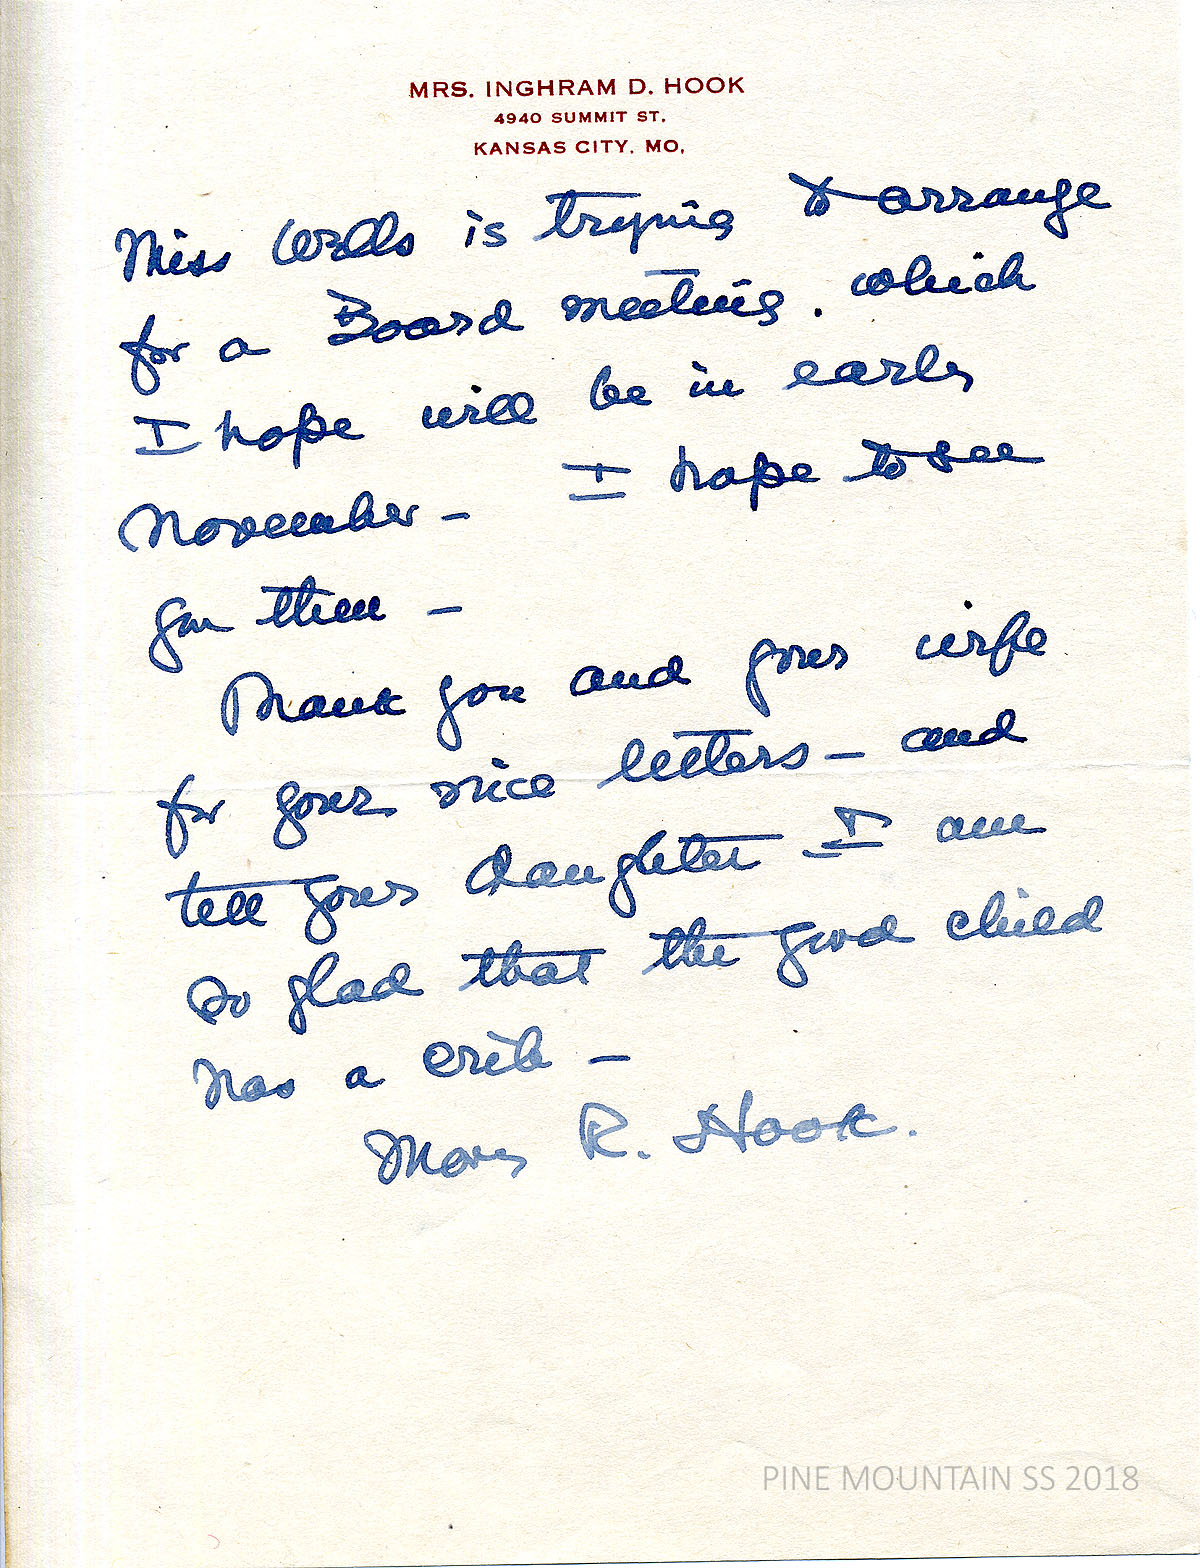 MRS. INGHRAM D. HOOK
4940 SUMMIT ST.
KANSAS CITY, MO.
Miss Wells is trying to arrange
for a Board meeting. which
I hope will be in early
November - I hope to see
you then -
Thank you and your wife
for your nice letters - and
tell your daughter I am
so glad that the good child
has a crib -
Mary R. Hook.
PINE MOUNTAIN SS 2018